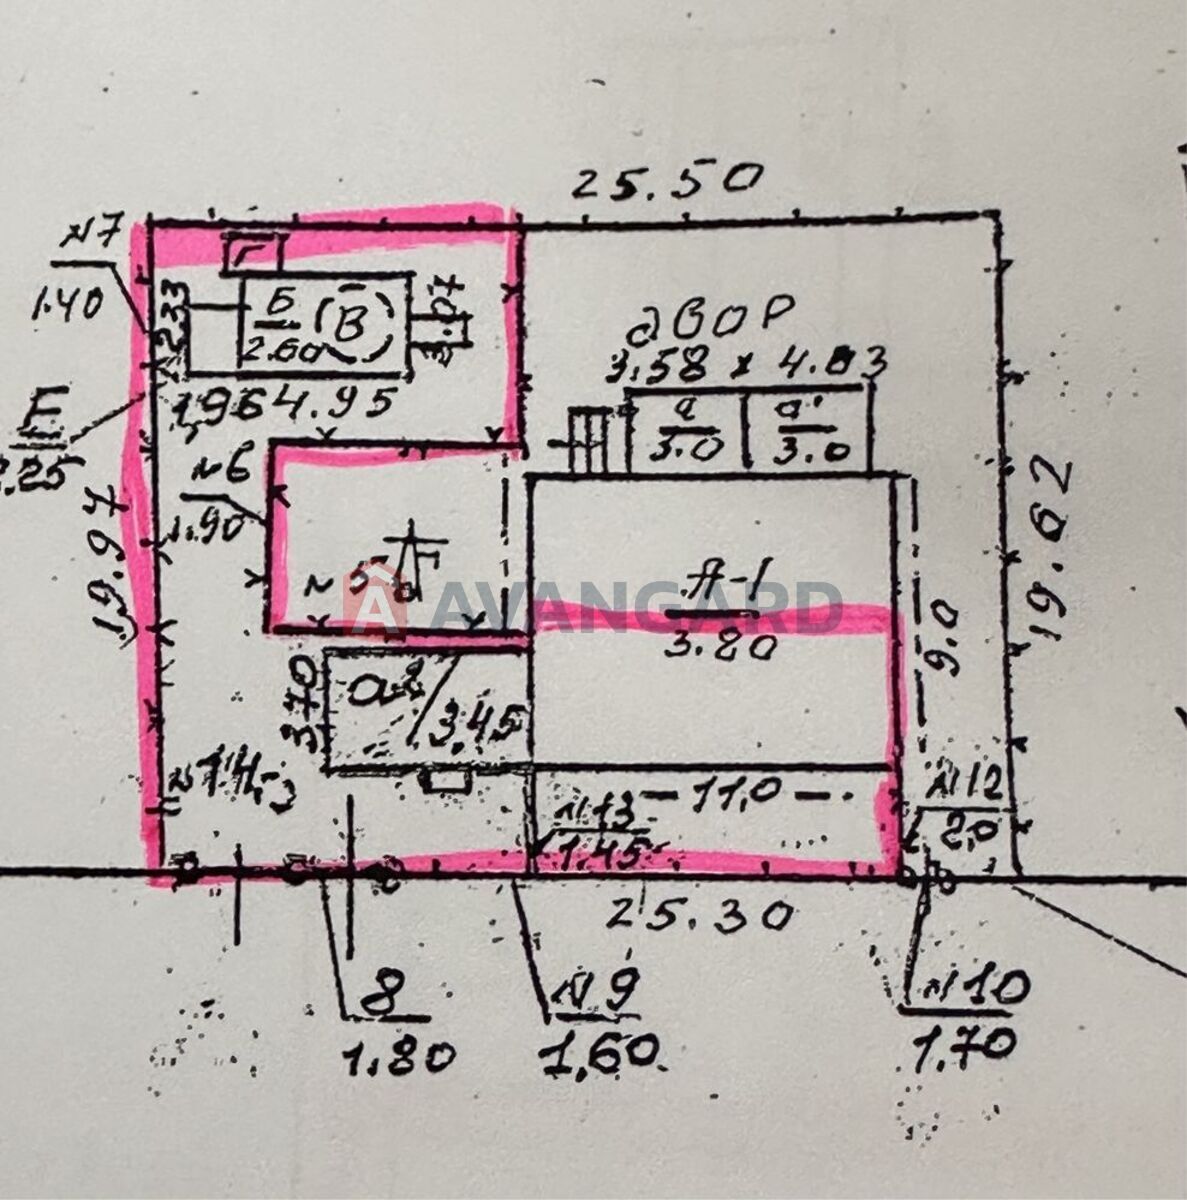 25.50
№7
1.40
Г
Б (В)
2.60
2.33
3.07
двор
3.58 x 4.03
1,96 4.95
а
3.0
а¹
3.0
Е
2.25
№6
1.90
19.97
19.62
№5
А-1
3.20
AVANGARD
9.0
а²
3.45
3.70
№12
2,0
11,0
№13
1.45
25.30
8
1.80
№9
1,60
№10
1,70